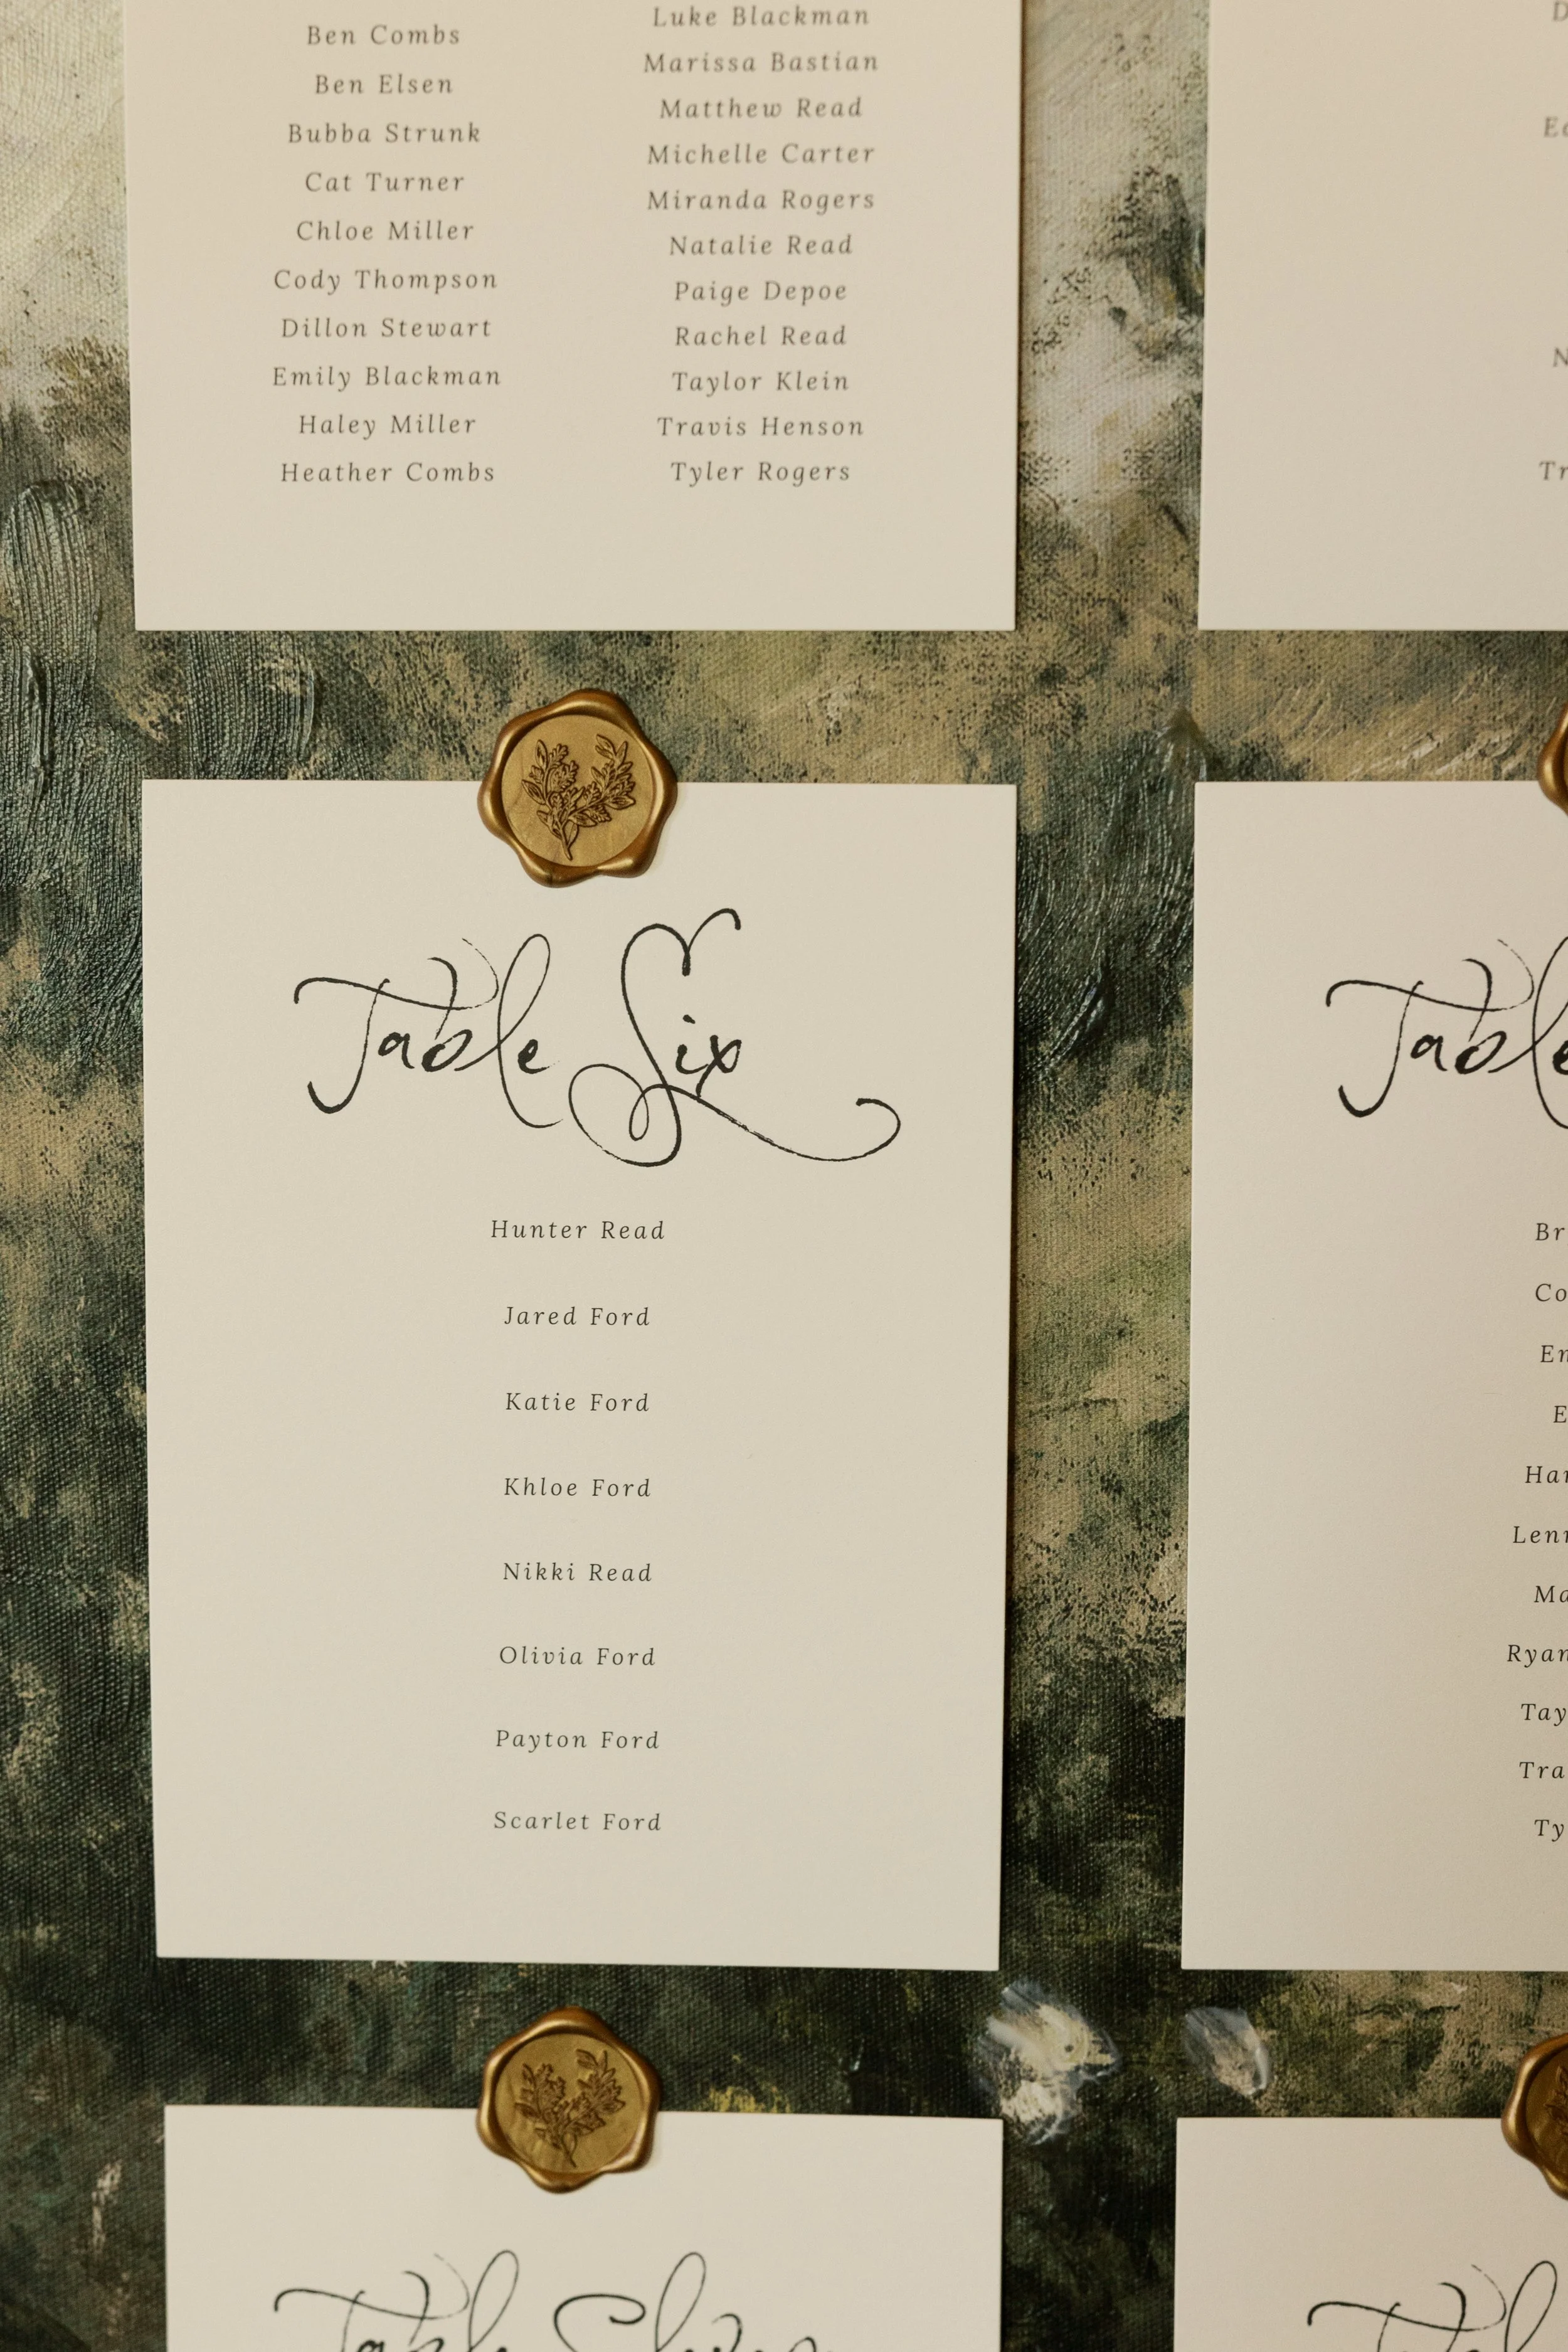 Ben Combs
Ben Elsen
Bubba Strunk
Cat Turner
Chloe Miller
Cody Thompson
Dillon Stewart
Emily Blackman
Haley Miller
Heather Combs
Luke Blackman
Marissa Bastian
Matthew Read
Michelle Carter
Miranda Rogers
Natalie Read
Paige Depoe
Rachel Read
Taylor Klein
Travis Henson
Tyler Rogers
Table Six
Hunter Read
Jared Ford
Katie Ford
Khloe Ford
Nikki Read
Olivia Ford
Payton Ford
Scarlet Ford
Table
Table